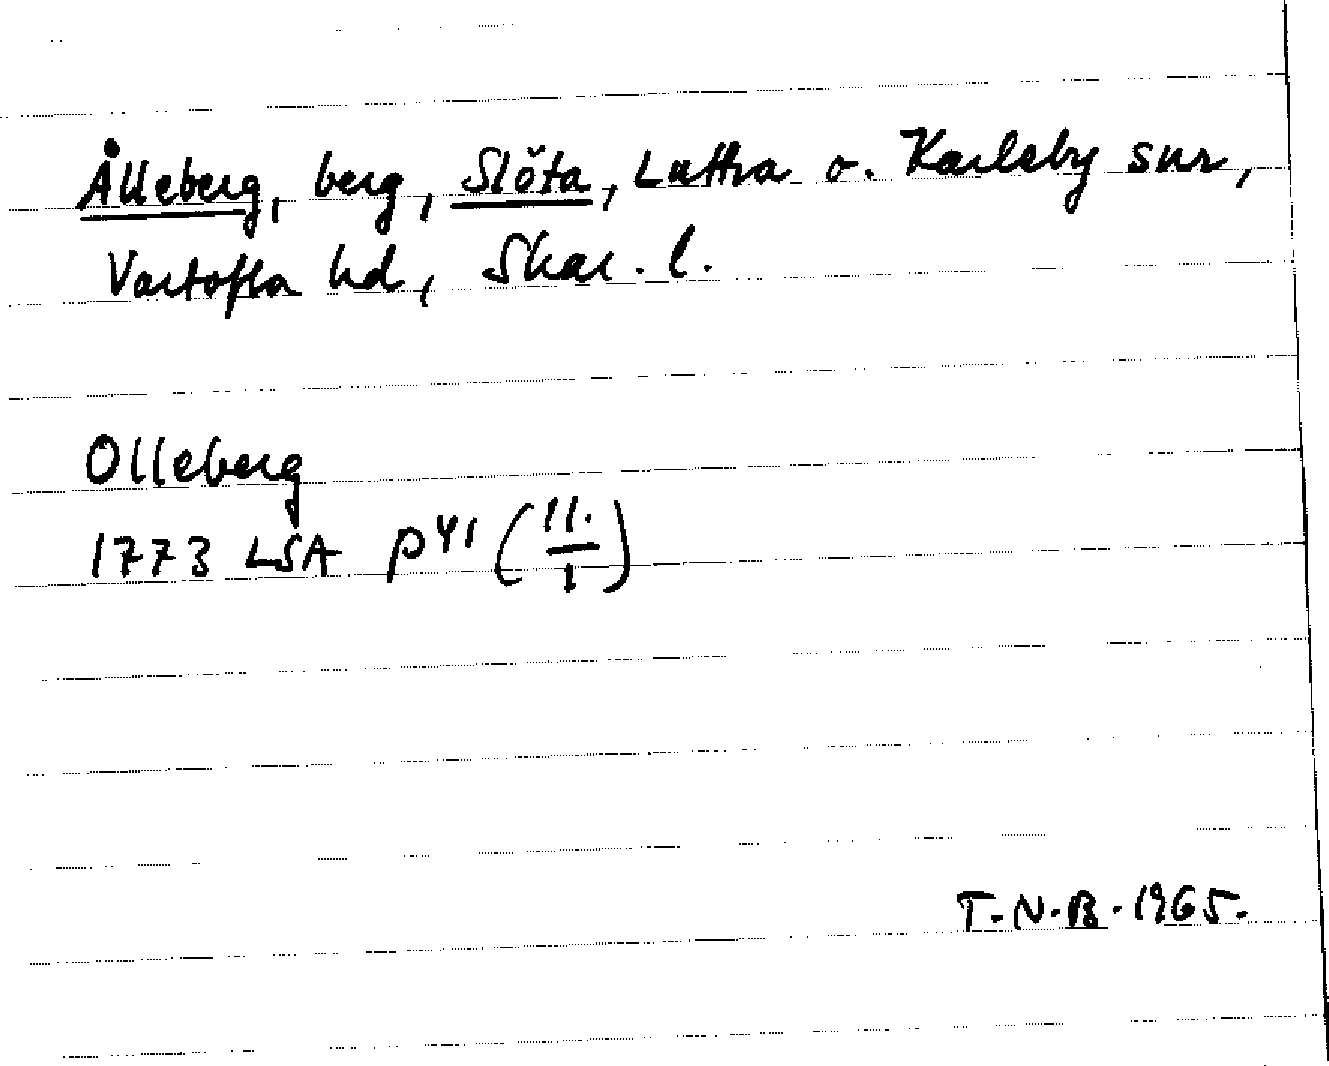 Ålleberg, berg, Slöta, Luttra o. Karleby snr,
Vartofta hd, Skar. l.
Olleberg
1773 LSA P 41 (11./1)
T.N.B. 1965.